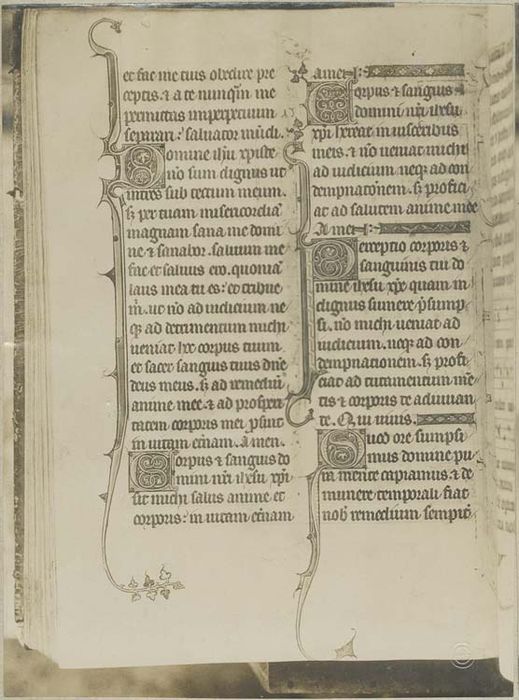 et fac me tuis obedire pre
ceptis. & a te nunq̄m me
permittas imperpetuum
separari. saluator mūdi.
Domine ih̄u xp̄iste
nō sum dignus ut
intres sub tectum meum.
s; per tuam misericordiā
magnam sana me domi
ne & sanabor. saluum me
fac et saluus ero. quoniā
laus mea tu es. et tribue
m̄. ut nō ad iudicium ne
q; ad detrimentum michi
ueniat hoc corpus tuum.
et sacer sanguis tuus dn̄e
deus meus. s; ad remediū
anime mee. & ad prosperi
tatem corporis mei p̄sint
in uitam et̄nam. amen.
Corpus & sanguis do
mini nr̄i ih̄esu xp̄i
sit michi salus anime et
corporis. in uitam et̄nam
amen.
Corpus & sanguis
domini nr̄i ih̄esu
xp̄i hereat in uisceribus
meis. & nō ueniat michi
ad iudicium neq; ad con
dempnatōnem. s; profici
at ad salutem anime mee
Amen.
Perceptio corporis &
sanguinis tui do
mine ih̄esu xp̄e quam in
dignus sumere p̄sump
si. nō michi ueniat ad
iudicium. neq; ad con
dempnationem. s; profi
ciat ad tutamentum mē
tis & corporis te adiuuan
te. Qui uiuis.
Quod ore sumpsi
mus domine pu
ra mente capiamus. & de
munere temporali fiat
nob̄ remedium sempit̄